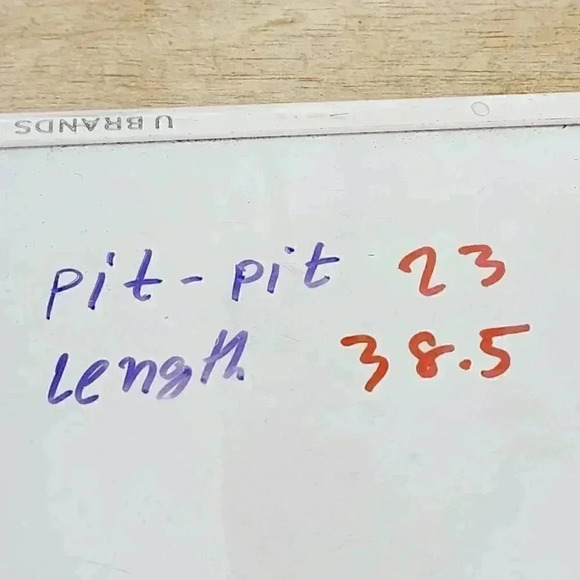 U BRANDS
pit - pit 23
Length 38.5